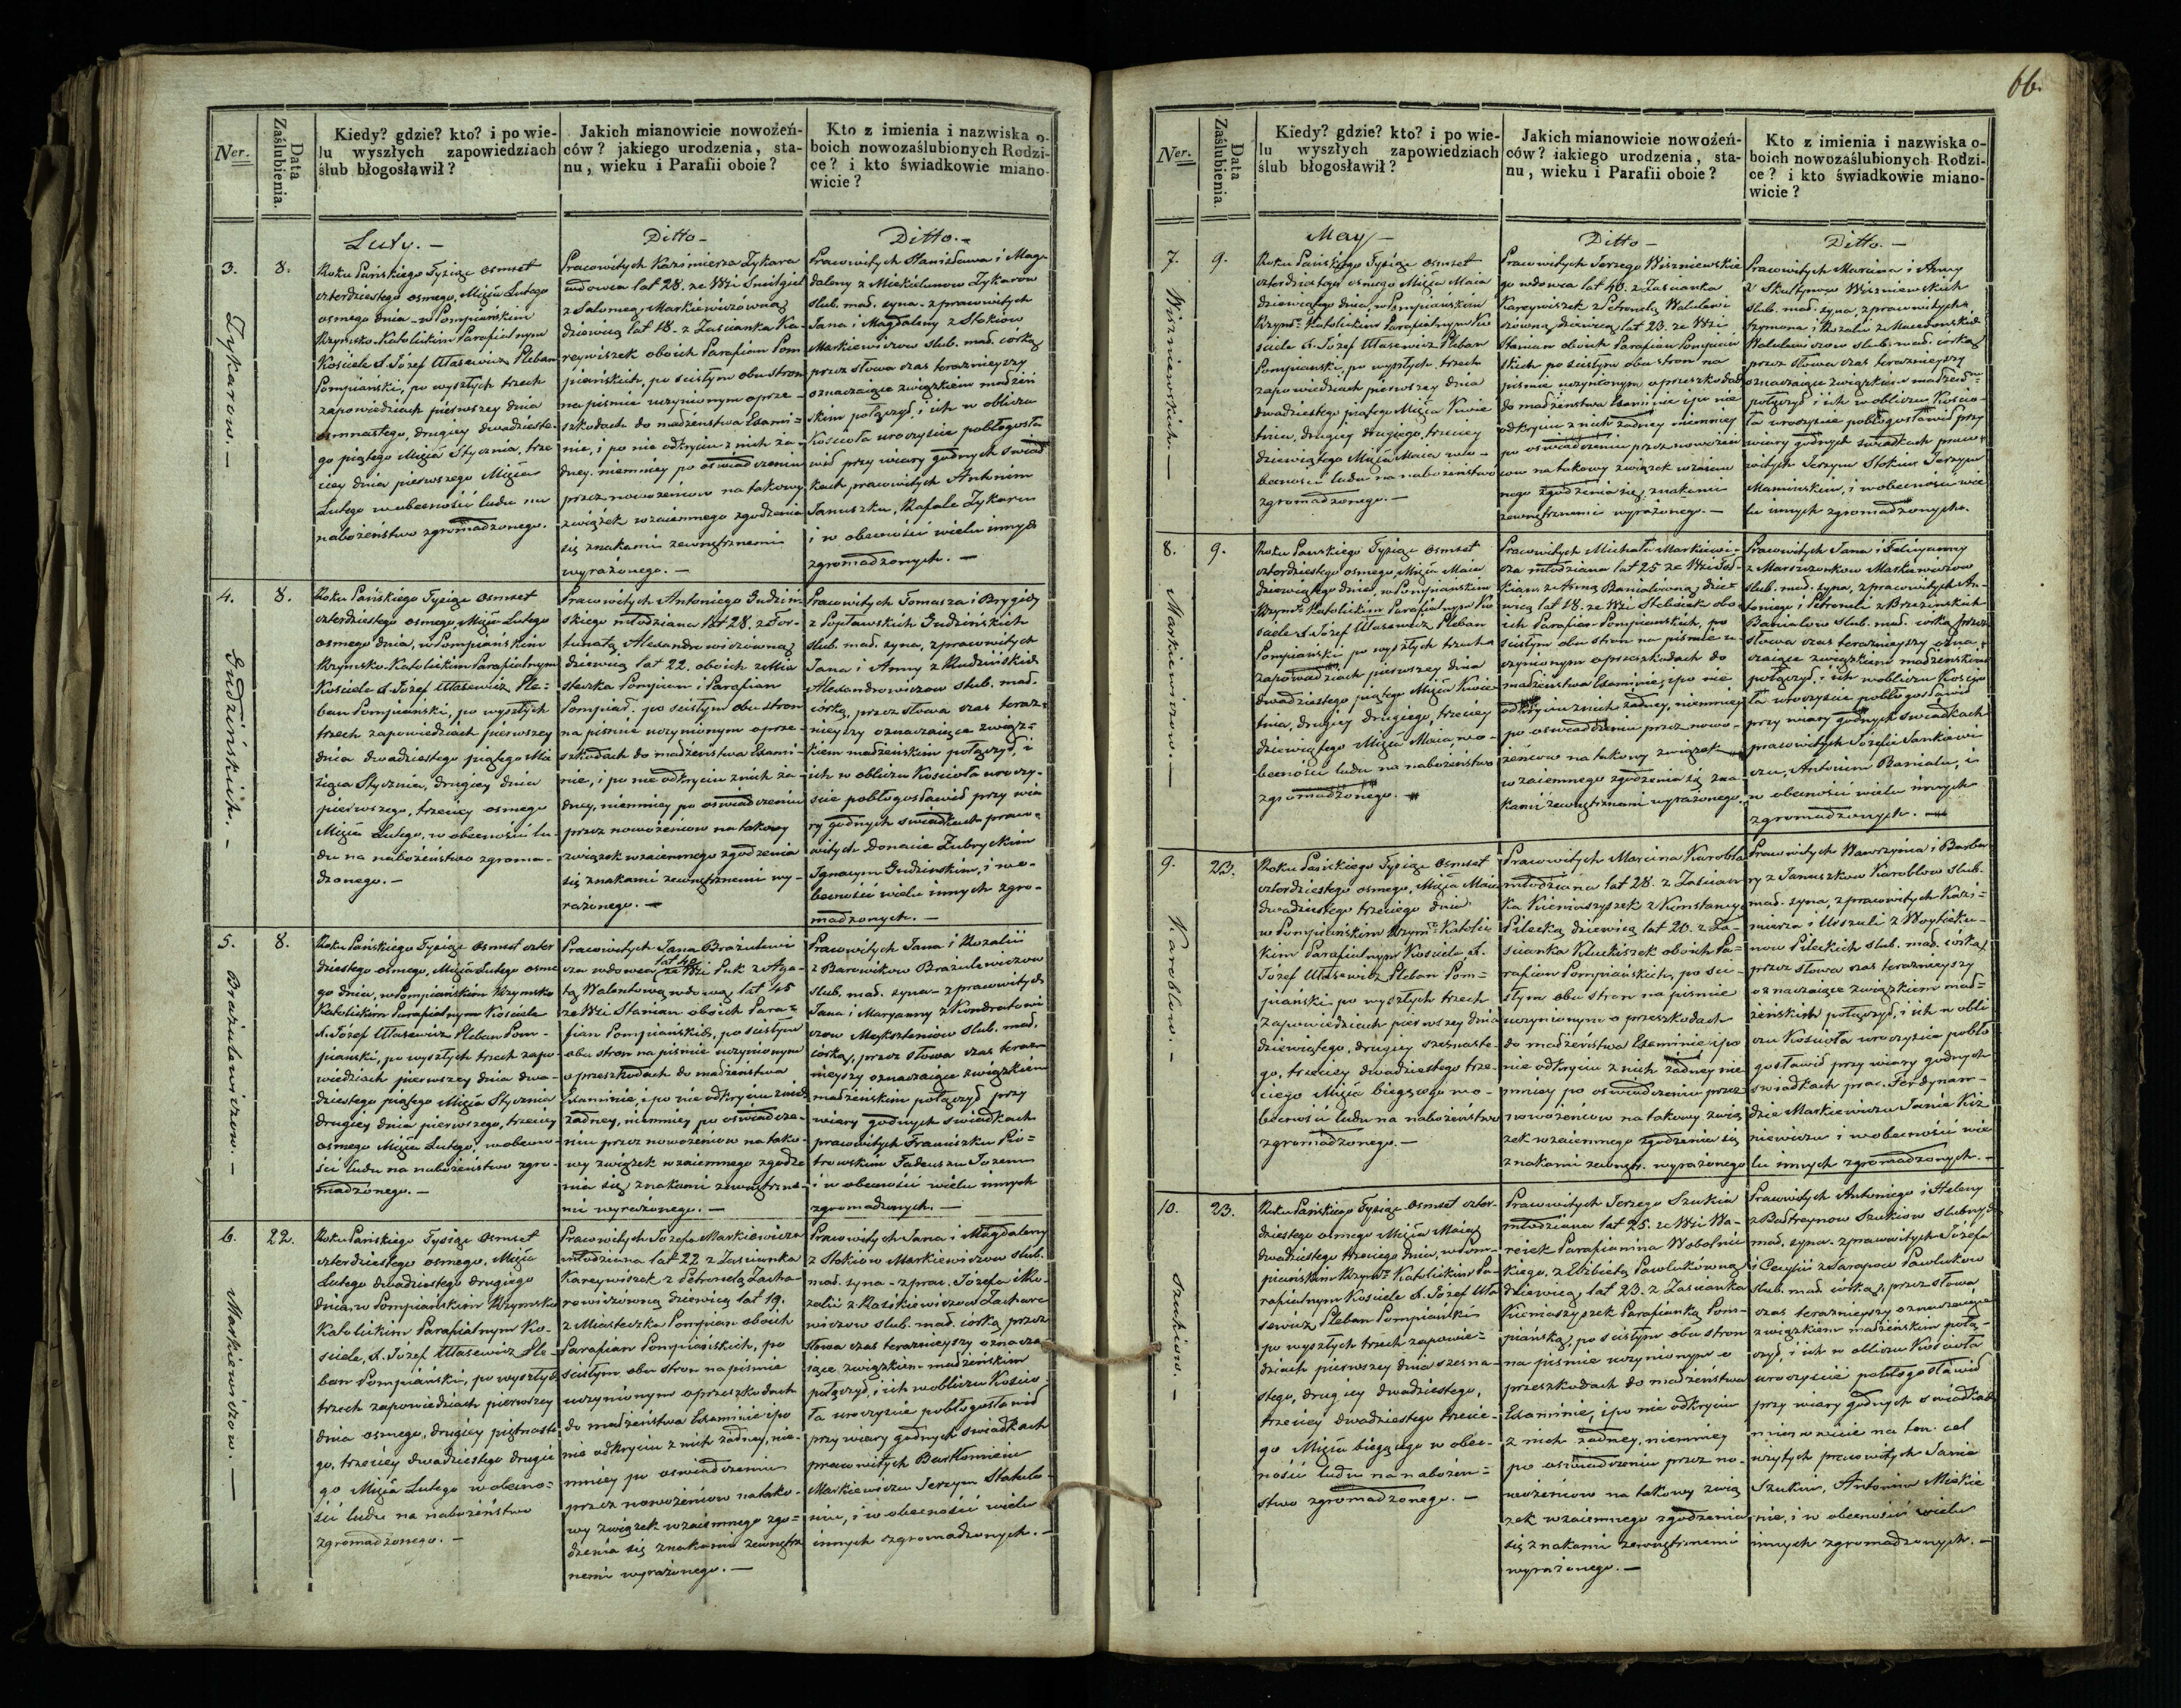 66.
Ner.
Data Zaślubienia.
Kiedy? gdzie? kto? i po wie-
lu wyszłych zapowiedziach
ślub błogosławił?
Jakich mianowicie nowożeń-
ców? jakiego urodzenia, sta-
nu, wieku i Parafii oboie?
Kto z imienia i nazwiska o-
boich nowozaślubionych Rodzi-
ce? i kto świadkowie miano-
wicie?
Luty. —
Ditto —
Ditto. —
3.
8.
Zykarow. —
Roku Pańskiego Tysiąc osmset
czterdziestego osmego, Mięsia Lutego
osmego dnia — w Pompiańskim
Rzymsko-Katolickim Parafialnym
Kościele X. Józef Własewicz Pleban
Pompiański, po wyszłych trzech
zapowiedziach pierwszey dnia
osmnastego, drugiey dwadzieste-
go piątego Mięsia Stycznia, trze
ciey dnia pierwszego Mięsia
Lutego w obecności ludu na
nabożeństwo zgromadzonego.
Pracowitych Kazimierza Zykara
wdowca lat 28. ze Wsi Smilgiel
z Salomeą Markiewiczówną
dziewicą lat 18. z Zascianka Ka-
reywiszek oboich Parafian Pom
piańskich, po scisłym obu stron
na pismie uczynionym o prze-
szkodach do małżeństwa Exami-
nie, i po nie odkryciu z nich ża-
dney, niemniey po oświadczeniu
przez nowożeńcow na takowy
związek wzaiemnego zgodzenia
się znakami zewnętrznemi
wyrażonego. —
Pracowitych Stanisława i Mag-
daleny z Mickielunow Zykarow
slub. mał. syna — z pracowitych
Jana i Magdaleny z Stokiow
Markiewiczow slub. mał. córką
przez słowa czas teraznieyszy
oznaczaiące związkiem małżeń
skim połączył, i ich w obliczu
Kościoła uroczyscie pobłogosła
wił przy wiary godnych swiad
kach pracowitych Antonim
Januszku, Rafale Zykaru
i w obecności wielu innych
zgromadzonych. —
4.
8.
Gudzińskich. —
Roku Pańskiego Tysiąc osmset
czterdziestego osmego Mięsia Lutego
osmego dnia, w Pompiańskim
Rzymsko-Katolickim Parafialnym
Kościele X. Józef Własewicz Ple-
ban Pompiański, po wyszłych
trzech zapowiedziach pierwszey
dnia dwadziestego piątego Mie
siąca Stycznia, drugiey dnia
pierwszego, trzeciey osmego
Mięsia Lutego, w obecności lu-
du na nabożeństwo zgroma-
dzonego. —
Pracowitych Antoniego Gudziń-
skiego młodziana lat 28. z For-
tunatą Alexandrowiczówną
dziewicą lat 22. oboich z Mia
steczka Pompian i Parafian
Pompiań. po scisłym obu stron
na pismie uczynionym o prze-
szkodach do małżeństwa Exami-
nie, i po nie odkryciu z nich ża-
dney, niemniey po oświadczeniu
przez nowożeńcow na takowy
związek wzaiemnego zgodzenia
się znakami zewnętrznemi wy-
rażonego. —
Pracowitych Tomasza i Brygidy
z Popławskich Gudzińskich
slub. mał. syna, z pracowitych
Jana i Anny z Rudzińskich
Alexandrowiczow slub. mał.
córką, przez słowa czas teraz-
nieyszy oznaczaiące związ-
kiem małżeńskim połączył, i
ich w obliczu Kościoła uroczy-
scie pobłogosławił przy wia
ry godnych swiadkach praco-
witych Donacie Zubryckim
Ignacym Gudzinskim, i w o-
becności wielu innych zgro-
madzonych. —
5.
8.
Brażulewiczow. —
Roku Pańskiego Tysiąc osmset czter
dziestego osmego, Mięsia Lutego osme
go dnia, w Pompiańskim Rzymsko
Katolickim Parafialnym Kościele
X. Józef Własewicz Pleban Pom-
piański, po wyszłych trzech zapo-
wiedziach pierwszey dnia dwa-
dziestego piątego Mięsia Stycznia
drugiey dnia pierwszego, trzeciey
osmego Mięsia Lutego, w obecno-
ści ludu na nabożeństwo zgro-
madzonego. —
Pracowitych Jana Brażulewi
cza wdowca lat 40 ze Wsi Puk z Aga-
tą Walentową wdową lat 45
ze Wsi Stanian oboich Para-
fian Pompiańskich, po scisłym
obu stron na pismie uczynionym
o przeszkodach do małżeństwa
Examinie, i po nie odkryciu z nich
żadney, niemniey po oświadcze-
niu przez nowożeńcow na tako-
wy związek wzaiemnego zgodze
nia się znakami zewnętrzne-
mi wyrażonego. —
Pracowitych Jana i Rozalii
z Barowikow Brażulewiczow
slub. mał. syna — z pracowitych
Jana i Maryanny z Kondratowi
czow Meykszteniow slub. mał.
córką, przez słowa czas teraz-
nieyszy oznaczaiące związkiem
małżeńskim połączył przy
wiary godnych swiadkach
pracowitych Franciszku Pio-
trowskim Tadeuszu Jozenu
i w obecności wielu innych
zgromadzonych. —
6.
22.
Markiewiczow. —
Roku Pańskiego Tysiąc osmset
czterdziestego osmego, Mięsia
Lutego dwadziestego drugiego
dnia, w Pompiańskim Rzymsko
Katolickim Parafialnym Ko-
sciele, X. Jozef Własewicz Ple-
ban Pompiański, po wyszłych
trzech zapowiedziach pierwszey
dnia osmego, drugiey piętnaste
go, trzeciey dwadziestego drugie
go Mięsia Lutego w obecno-
ści ludu na nabożeństwo
zgromadzonego. —
Pracowitych Józefa Markiewicza
młodziana lat 22 z Zascianka
Kareywiszek z Petronelą Zacha-
rowiczówną dziewicą lat 19.
z Miasteczka Pompian oboich
Parafian Pompiańskich, po
scisłym obu stron na pismie
uczynionym o przeszkodach
do małżeństwa Examinie i po
nie odkryciu z nich żadney, nie-
mniey po oświadczeniu
przez nowożeńcow na tako-
wy związek wzaiemnego zgo-
dzenia się znakami zewnętrz
nemi wyrażonego. —
Pracowitych Jana i Magdaleny
z Stokiow Markiewiczow slub.
mał. syna — z prac. Józefa i Ro-
zalii z Raśkiewiczow Zacharo
wiczow slub. mał. córką przez
słowa czas teraznieyszy oznacza
iące, związkiem małżeńskim
połączył, i ich w obliczu Kościo
ła uroczyscie pobłogosławił
przy wiary godnych swiadkach
pracowitych Bartłomieiu
Markiewiczu Jerzym Statulo-
niu, i w obecności wielu
innych zgromadzonych. —
Ner.
Data Zaślubienia.
Kiedy? gdzie? kto? i po wie-
lu wyszłych zapowiedziach
ślub błogosławił?
Jakich mianowicie nowożeń-
ców? iakiego urodzenia, sta-
nu, wieku i Parafii oboie?
Kto z imienia i nazwiska o-
boich nowozaślubionych Rodzi-
ce? i kto świadkowie miano-
wicie?
May —
Ditto —
Ditto. —
7.
9.
Wiszniewskich. —
Roku Pańskiego Tysiąc osmset
czterdziestego osmego Mięsia Maia
dziewiątego dnia, w Pompiańskim
Rzym: Katolickim Parafialnym Ko
sciele X. Józef Własewicz Pleban
Pompiański, po wyszłych trzech
zapowiedziach pierwszey dnia
dwadziestego piątego Mięsia Kwie
tnia, drugiey drugiego, trzeciey
dziewiątego Mięsia Maia w o-
becności ludu na nabożeństwo
zgromadzonego. —
Pracowitych Jerzego Wiszniewskie
go wdowca lat 40. z Zascianka
Kareywiszek z Petronelą Walulewi
czówną dziewicą lat 23. ze Wsi
Stanian oboich Parafian Pompian
skich po scisłym obu stron na
pismie uczynionym o przeszkodach
do małżeństwa Examinie i po nie
odkryciu z nich żadney niemniey
po oświadczeniu przez nowożeń
cow na takowy związek wzaiem
nego zgodzenia się, znakami
zewnętrznemi wyrażonego. —
Pracowitych Marcina i Anny
z Skultynow Wiszniewskich
slub. mał. syna, z pracowitych
Szymona i Rozalii z Macedonskich
Walulewiczow slub. mał. córką
przez słowa czas teraznieyszy
oznaczaiące związkiem małżeńs:
połączył i ich w obliczu Kościo-
ła uroczyscie pobłogosławił przy
wiary godnych swiadkach praco-
witych Jerzym Stokiu Jerzym
Maminskim, i w obecności wie
lu innych zgromadzonych.
8.
9.
Markiewiczow. —
Roku Pańskiego Tysiąc osmset
czterdziestego osmego Mięsia Maia
dziewiątego dnia, w Pompiańskim
Rzym: Katolickim Parafialnym Ko
sciele X. Józef Własewicz Pleban
Pompiański po wyszłych trzech
zapowiedziach pierwszey dnia
dwadziestego piątego Mięsia Kwie-
tnia, drugiey drugiego, trzeciey
dziewiątego Mięsia Maia, w o-
becności ludu na nabożeństwo
zgromadzonego. —
Pracowitych Michała Markiewi-
cza młodziana lat 25 ze Wsi
z Anną Banialówną dzie-
wicą lat 18. ze Wsi obo
ich Parafian Pompianskich, po
scisłym obu stron na pismie u-
czynionym o przeszkodach do
małżeństwa Examinie, i po nie
odkryciu z nich żadney, niemniey
po oświadczeniu przez nowo-
żeńcow na takowy związek
wzaiemnego zgodzenia się zna-
kami zewnętrznemi wyrażonego.
Pracowitych Jana i Felicyanny
z Marcinkow Markiewiczow
slub. mał. syna, z pracowitych An-
toniego i Petroneli z Brzezinskich
Banialow slub. mał. córką przez
słowa czas teraznieyszy ozna-
czaiące związkiem małżenskim
połączył, i ich w obliczu Kościo
ła uroczyscie pobłogosławił
przy wiary godnych swiadkach
pracowitych Józefie Jankiewi
czu, Antonim Banialu, i
w obecności wielu innych
zgromadzonych. —
9.
23.
Karoblow. —
Roku Pańskiego Tysiąc osmset
czterdziestego osmego, Mięsia Maia
dwadziestego trzeciego dnia
w Pompiańskim Rzym: Katolic
kim Parafialnym Kosciele X.
Józef Własewicz Pleban Pom-
piański po wyszłych trzech
zapowiedziach pierwszey dnia
dziewiątego, drugiey szesnaste-
go, trzeciey dwadziestego trze-
ciego Mięsia bieżącego w o-
becności ludu na nabożeństwo
zgromadzonego. —
Pracowitych Marcina Karobla
młodziana lat 28. z Zascian
ka Kieniaszyszek z Konstancyą
Pilecką dziewicą lat 20. z Za-
scianka Kluckiszek oboich Pa-
rafian Pompiańskich, po sci-
słym obu stron na pismie
uczynionym o przeszkodach
do małżeństwa Examinie i po
nie odkryciu z nich żadney nie
mniey po oświadczeniu przez
nowożeńcow na takowy zwią
zek wzaiemnego zgodzenia się
znakami zewnętr. wyrażonego
Pracowitych Wawrzynia i Barba-
ry z Januszkow Karoblow slub.
mał. syna, z pracowitych Kazi-
mierza i Urszuli z Woytieku-
now Pileckich slub. mał. córką
przez słowa czas teraznieyszy
oznaczaiące związkiem mał-
żeńskim połączył, i ich w obli
czu Kościoła uroczyscie pobło
gosławił przy wiary godnych
swiadkach prac. Ferdynan-
dzie Markiewiczu Janie Kiz
niewiczu i w obecności wie
lu innych zgromadzonych. —
10.
23.
Szukiow. —
Roku Pańskiego Tysiąc osmset czter-
dziestego osmego Mięsia Maia
dwadziestego trzeciego dnia, w Pom-
piańskim Rzym: Katolickim Pa-
rafialnym Kosciele X. Józef Wła
sewicz Pleban Pompiański
po wyszłych trzech zapowie-
dziach pierwszey dnia szesna-
stego, drugiey dwadziestego,
trzeciey dwadziestego trzecie-
go Mięsia bieżącego w obec-
ności ludu na nabożeń-
stwo zgromadzonego. —
Pracowitych Jerzego Szukia
młodziana lat 25. ze Wsi Wa-
reiek Parafianina Wobolnic
kiego, z Elżbietą Pawlukówną
dziewicą, lat 23. z Zascianka
Kieniaszyszek Parafianką Pom-
piańską, po scisłym obu stron
na pismie uczynionym o
przeszkodach do małżeństwa
Examinie, i po nie odkryciu
z nich żadney, niemniey
po oświadczeniu przez no-
wożeńcow na takowy zwią
zek wzaiemnego zgodzenia
się znakami zewnętrznemi
wyrażonego. —
Pracowitych Antoniego i Heleny
z Bastreynow Szukiow slubnych
mał. syna — z pracowitych Józefa
i Cecylii z Sarapow Pawlukow
slub. mał. córką, przez słowa
czas teraznieyszy oznaczaiące
związkiem małżeńskim połą-
czył, i ich w obliczu Kościoła
uroczyscie pobłogosławił
przy wiary godnych swiadkach
umyslnie na ten cel
wzytych pracowitych Janie
Szukiu, Antonim Mickie
nie, i w obecności wielu
innych zgromadzonych. —